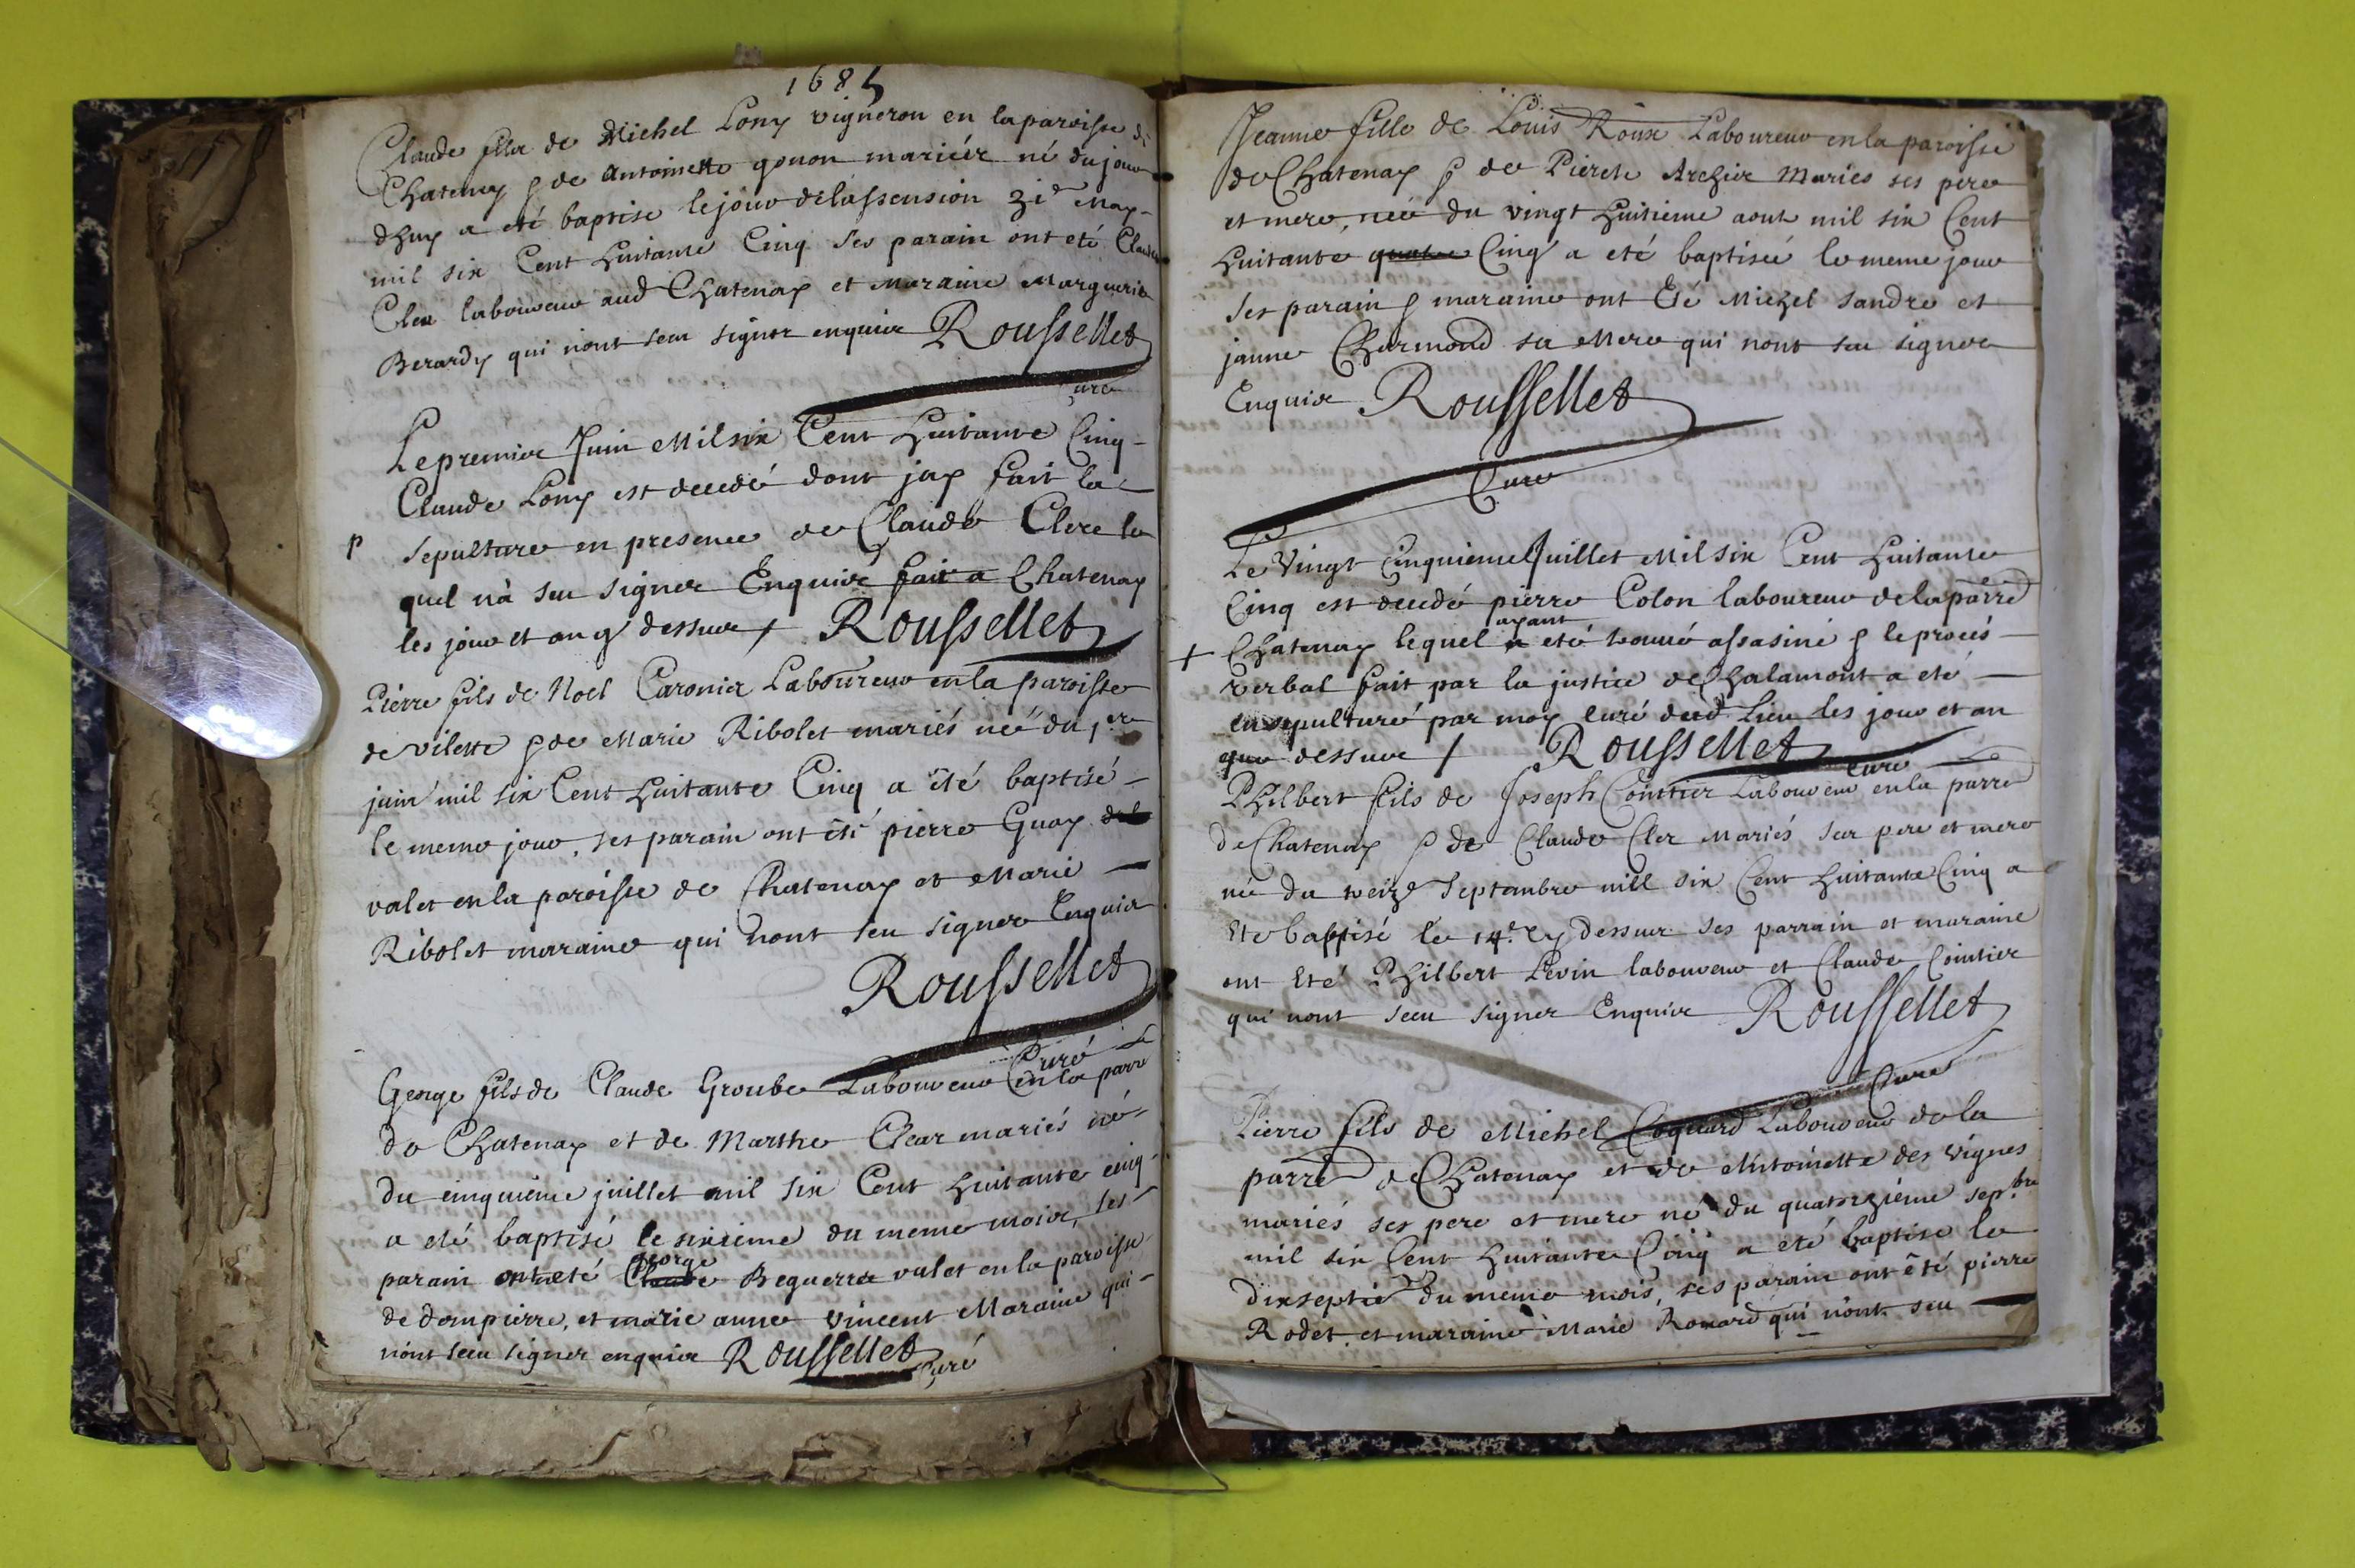 1685
Claude filz de Michel Lony vigneron en la paroisse de
Chatenay & de Antoinette gonon mariéz né du jour
dhuy a eté baptise le jour de lassension 31e May
mil six Cent huitante Cinq ses parain ont eté Claude
Cler laboureur aud Chatenay et Maraine Marguerite
Berardy qui nont seu signer enquis Roussellet
curé
Le premier Juin Mil six Cent huitante Cinq
Claude Lony est decedé dont jay fait la
p sepulture en presence de Claude Clere le
quel nà seu signer Enquis fait a Chatenay
les jour et an q dessus / Roussellet
Pierre fils de Noel Caronier Laboureur en la paroisse
de vilette & de Marie Ribolet mariés né du 1er
juin mil six Cent huitante Cinq a été baptisé
le meme jour, ses parain ont été pierre Guay
valet en la paroisse de Chatenay et Marie
Ribolet maraine qui nont seu signer Enquis
Roussellet
Curé
George fils de Claude Groube Laboureur en la parre
de Chatenay et de Marthe Clear mariés né
du cinquieme juillet mil six Cent huitante cinq
a eté baptisé le sixieme du meme mois, ses
george
parain ont eté Claude Beguerre valet en la paroisse
de dompierre, et marie anne vincent Maraine qui
nont seeu signer enquis Roussellet curé
Jeanne fille de Louis Roux Laboureur en la paroisse
de Chatenay & de Pierete Arezier Mariés ses pere
et mere, née du vingt huitieme aout mil six Cent
huitante quatre Cinq a eté baptisée le meme jour
ses parain & maraine ont Eté Michel sandre et
janne Charmond sa Mere qui nont seu signer
Enquis Roussellet
Curé
Le Vingt Cinquieme Juillet Mil six Cent huitante
Cinq est decedé pierre Colon laboureur de la parre
ayant
+ Chatenay lequel a eté trouvé assasiné & le procés
verbal fait par la justice de Chalamont a eté
ensepulturé par moy curé dud Lieu les jour et an
que dessus / Roussellet curé
Philbert fils de Joseph Cointier Laboureur en la parre
de Chatenay & de Claude Cler Mariés ses pere et mere
né du treize Septembre mill six Cent huitante Cinq a
Eté baptisé le 14e. cy dessus ses parrain et maraine
ont Eté Philbert Pevin laboureur et Claude Cointier
qui nont seeu signer Enquis Roussellet
Curé
Pierre fils de Michel Coquard Laboureur de la
parre de Chatenay et de Antoinette des vignes
mariés ses pere et mere né du quatorzieme sepbre
mil six Cent huitante Cinq a eté baptise le
dixseptie du meme mois, ses parain ont été pierre
Rodet et maraine Marie Ronard qui nont seu